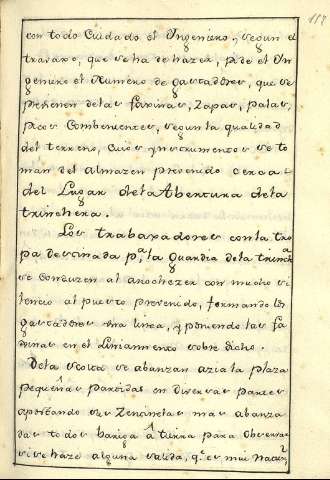 con todo Cuidado el Ingeniero, segun el
travaxo, que se ha de hazer, pide el In
geniero el Numero de gastadores, que se
previenen delas faxinas, Zapas, palas,
picos Combenientes, segun la qualidad
del terreno, cuios ynstrumentos se to
man del Almazen prevenido cerca
del Lugar dela Abertura dela
trinchera.
Los trabaxadores con la tro
pa destinada pª la guardia dela trincha
se conduzen al anochezer con mucho si
lencio al puesto prevenido, formando los
gastadores una linea, y poniendo las fa
xinas en el Liniamiento sobre dicho.
Dela escolta se abanzan azia la plaza
pequeñas partidas en diversas partes
apostando sus Zentinelas mas abanza
das todos bariga â tierra para observar
si se haze alguna salida, q.e es mui